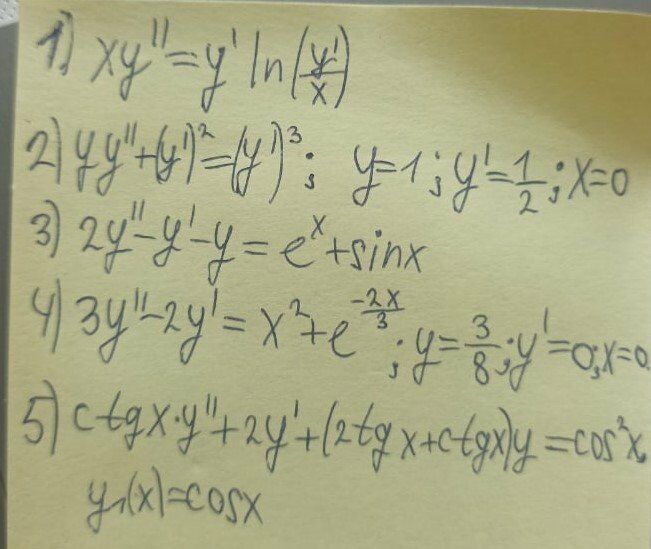 1) xy'' = y' ln(y'/x)
2) yy'' + (y')² = (y')³; y=1; y'=1/2; x=0
3) 2y'' - y' - y = eˣ + sinx
4) 3y'' - 2y' = x² + e^(-2x/3); y=3/8; y'=0; x=0.
5) ctgx·y'' + 2y' + (2tgx + ctgx)y = cos²x,
y₁(x) = cosx